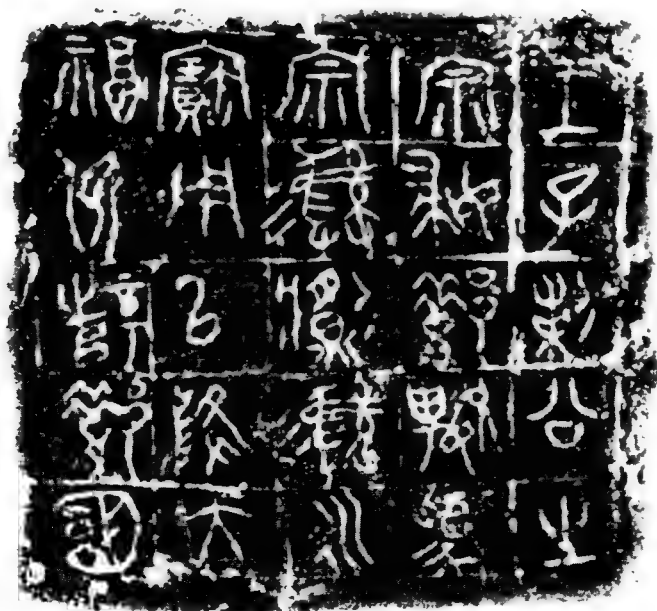 王子剌公之
宗婦嬰爲
宗彝彝永
寶用以降大
福保辥國